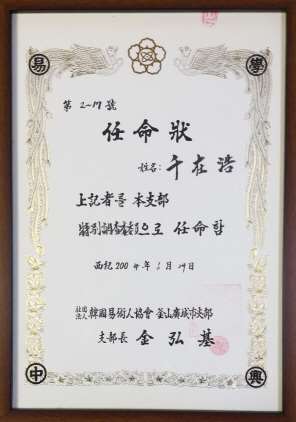 易 學
第 2-17 號
任命狀
姓名: 千在浩
上記者를 本支部
特別調査委員으로 任命함
西紀 2004年 6月 19日
社團法人 韓國易術人協會 釜山廣域市支部
支部長 金弘基
中 興